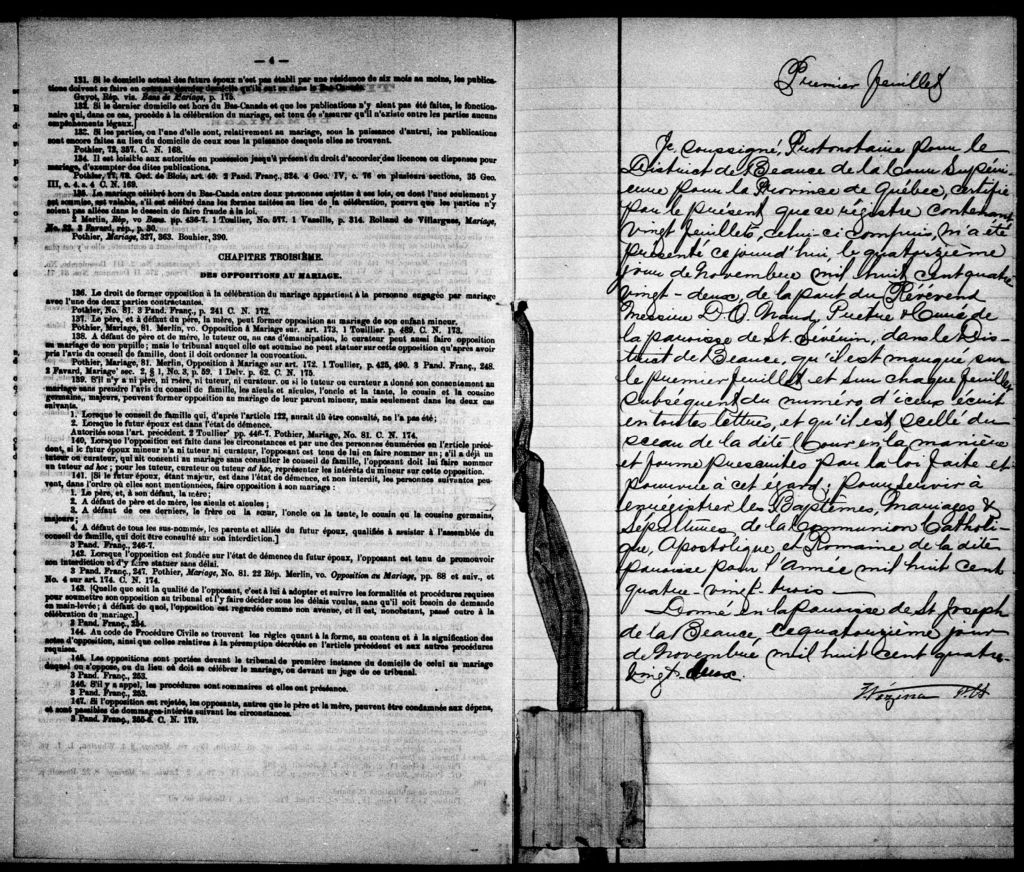 — 4 —
131. Si le domicile actuel des futurs époux n'est pas établi par une résidence de six mois au moins, les publica-
tions doivent se faire en outre au dernier domicile qu'ils ont eu dans le Bas-Canada.
Guyot, Rép. vis. Bans de Mariage, p. 175.
132. Si le dernier domicile est hors du Bas-Canada et que les publications n'y aient pas été faites, le fonction-
naire qui, dans ce cas, procède à la célébration du mariage, est tenu de s'assurer qu'il n'existe entre les parties aucuns
empêchements légaux.]
133. Si les parties, ou l'une d'elles sont, relativement au mariage, sous la puissance d'autrui, les publications
sont encore faites au lieu du domicile de ceux sous la puissance desquels elles se trouvent.
Pothier, 72, 357. C. N. 168.
134. Il est loisible aux autorités en possession jusqu'à présent du droit d'accorder des licences ou dispenses pour
mariage, d'exempter des dites publications.
Pothier, 77, 78. Ord. de Blois, art. 40. 2 Pand. Franç., 324. 4 Geo. IV, c. 76 en plusieurs sections, 35 Geo.
III, c. 4. s. 4 C. N. 169.
135. Le mariage célébré hors du Bas-Canada entre deux personnes sujettes à ses lois, ou dont l'une seulement y
est soumise, est valable, s'il est célébré dans les formes usitées au lieu de la célébration, pourvu que les parties n'y
soient pas allées dans le dessein de faire fraude à la loi.
2 Merlin, Rép, vo Bans. pp. 436-7. 1 Toullier, No. 577. 1 Vazeille, p. 314. Rolland de Villargues, Mariage,
No. 22. 3 Favard, rép., p. 30.
Pothier, Mariage, 327, 363. Bouhier, 390.
CHAPITRE TROISIÈME.
DES OPPOSITIONS AU MARIAGE.
136. Le droit de former opposition à la célébration du mariage appartient à la personne engagée par mariage
avec l'une des deux parties contractantes.
Pothier, No. 81. 3 Pand. Franç., p. 241 C. N. 172.
137. Le père, et à défaut du père, la mère, peut former opposition au mariage de son enfant mineur.
Pothier, Mariage, 81. Merlin, vo. Opposition à Mariage sur. art. 173, 1 Toullier. p. 489. C. N. 173.
138. A défaut de père et de mère, le tuteur ou, au cas d'émancipation, le curateur peut aussi faire opposition
au mariage de son pupille; mais le tribunal auquel elle est soumise ne peut statuer sur cette opposition qu'après avoir
pris l'avis du conseil de famille, dont il doit ordonner la convocation.
Pothier, Mariage, 81. Merlin, Opposition à Mariage sur art. 172. 1 Toulier, p. 425, 490. 3 Pand. Franç., 248.
2 Favard, Mariage' sec. 2, § 1, No. 3, p. 59. 1 Delv. p. 62. C. N. 175.
139. S'il n'y a ni père, ni mère, ni tuteur, ni curateur, ou si le tuteur ou curateur a donné son consentement au
mariage sans prendre l'avis du conseil de famille, les aïeuls et aïeules, l'oncle et la tante, le cousin et la cousine
germains, majeurs, peuvent former opposition au mariage de leur parent mineur, mais seulement dans les deux cas
suivants.
1. Lorsque le conseil de famille qui, d'après l'article 122, aurait dû être consulté, ne l'a pas été;
2. Lorsque le futur époux est dans l'état de démence.
Autorités sous l'art. précédent. 2 Toullier' pp. 446-7. Pothier, Mariage, No. 81. C. N. 174.
140. Lorsque l'opposition est faite dans les circonstances et par une des personnes énumérées en l'article précé-
dent, si le futur époux mineur n'a ni tuteur ni curateur, l'opposant est tenu de lui en faire nommer un; s'il a déjà un
tuteur ou curateur, qui ait consenti au mariage sans consulter le conseil de famille, l'opposant doit lui faire nommer
un tuteur ad hoc; pour les tuteur, curateur ou tuteur ad hoc, représenter les intérêts du mineur sur cette opposition.
141. [Si le futur époux, étant majeur, est dans l'état de démence, et non interdit, les personnes suivantes peu-
vent, dans l'ordre où elles sont mentionnées, faire opposition à son mariage:
1. Le père, et, à son défaut, la mère;
2. A défaut de père et de mère, les aïeuls et aïeules;
3. A défaut de ces derniers, le frère ou la sœur, l'oncle ou la tante, le cousin ou la cousine germains,
majeurs;
4. A défaut de tous les sus-nommés, les parents et alliés du futur époux, qualifiés à assister à l'assemblée du
conseil de famille, qui doit être consulté sur son interdiction.]
3 Pand. Franç., 246-7.
142. Lorsque l'opposition est fondée sur l'état de démence du futur époux, l'opposant est tenu de promouvoir
son interdiction et d'y faire statuer sans délai.
3 Pand. Franç., 247. Pothier, Mariage, No. 81. 22 Rép. Merlin, vo. Opposition au Mariage, pp. 88 et suiv., et
No. 4 sur art. 174. C. N. 174.
143. [Quelle que soit la qualité de l'opposant, c'est à lui à adopter et suivre les formalités et procédures requises
pour soumettre son opposition au tribunal et l'y faire décider sous les délais voulus, sans qu'il soit besoin de demande
en main-levée; à défaut de quoi, l'opposition est regardée comme non avenue, et il est, nonobstant, passé outre à la
célébration du mariage.]
3 Pand. Franç., 254.
144. Au code de Procédure Civile se trouvent les règles quant à la forme, au contenu et à la signification des
actes d'opposition, ainsi que celles relatives à la péremption décrétée en l'article précédent et aux autres procédures
requises.
145. Les oppositions sont portées devant le tribunal de première instance du domicile de celui au mariage
duquel on s'oppose, ou du lieu où doit se célébrer le mariage, ou devant un juge de ce tribunal.
3 Pand. Franç., 253.
146. S'il y a appel, les procédures sont sommaires et elles ont préséance.
3 Pand. Franç., 253.
147. Si l'opposition est rejetée, les opposants, autres que le père et la mère, peuvent être condamnés aux dépens,
et sont passibles de dommages-intérêts suivant les circonstances.
3 Pand. Franç., 255-6. C. N. 179.
Premier feuillet
Je, soussigné, Protonotaire pour le
District de Beauce de la Cour Supéri-
eure pour la Province de Québec, certifie
par le présent que ce régistre contenant
vingt feuillets, celui-ci compris, m'a été
présenté ce jourd'hui, le quatorzième
jour de Novembre mil huit cent quatre
vingt-deux, de la part du Révérend
Messire D. O. Naud, Prêtre & Curé de
la paroisse de St. Séverin, dans le Dis-
trict de Beauce, qu'il est marqué sur
le premier feuillet et sur chaque feuillet
subséquent du numéro d'iceux écrit
en toutes lettres, et qu'il est scellé du
sceau de la dite Cour en la manière
et forme prescrites par la loi faite et
pourvue à cet égard; pour servir à
enrégistrer les Baptêmes, Mariages &
Sépultures de la Communion Catholi-
que, Apostolique et Romaine de la dite
paroisse pour l'Année mil huit cent
quatre-vingt-trois —
Donné en la paroisse de St Joseph
de la Beauce, ce quatorzième jour
de Novembre mil huit cent quatre-
vingt-deux.
Vézina